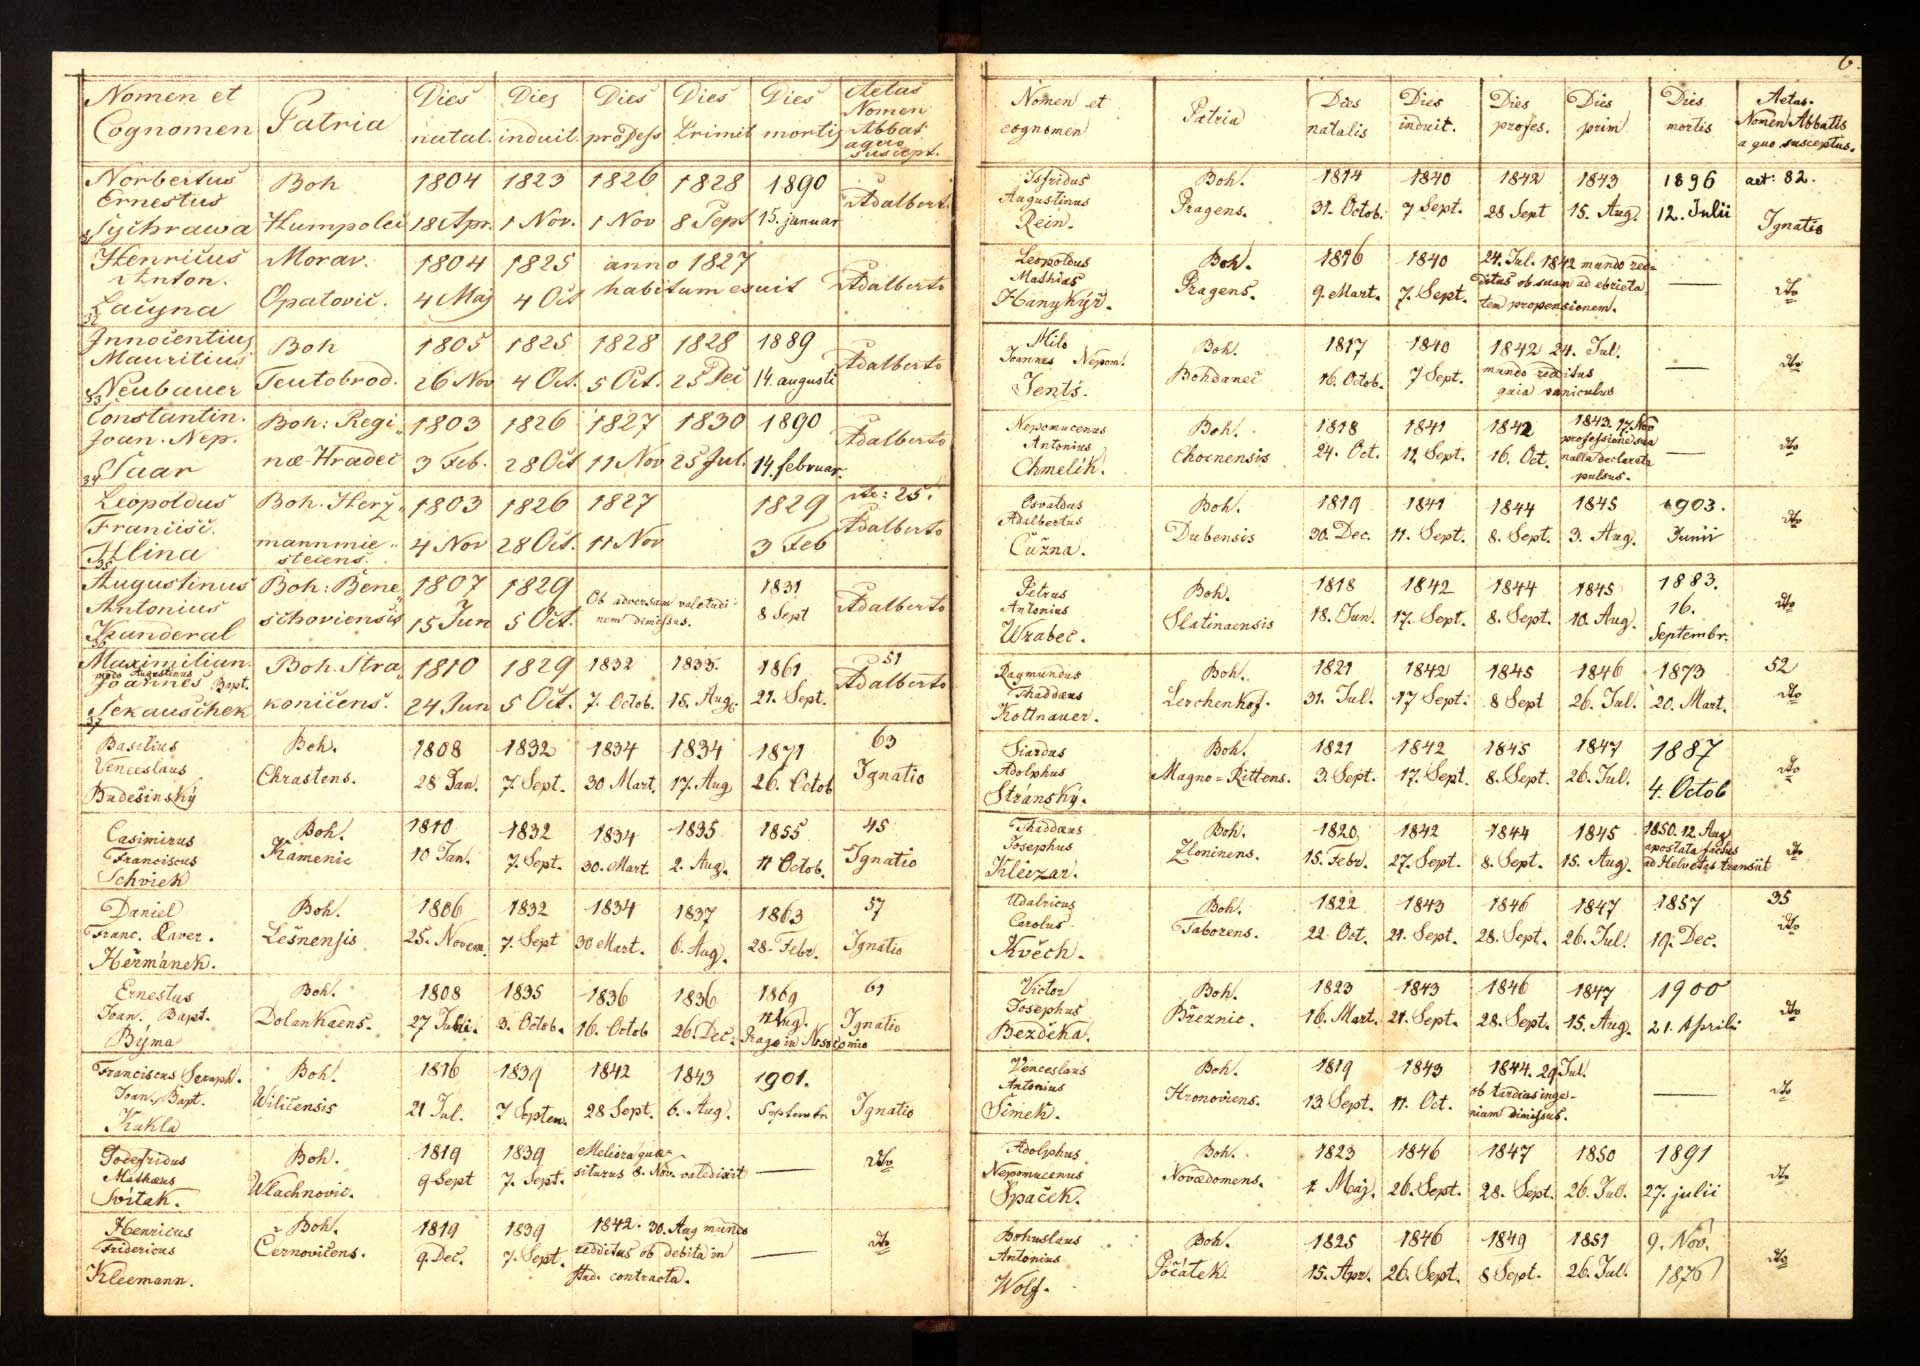 6.
Nomen et Cognomen | Patria | Dies natal. | Dies induit. | Dies profess | Dies Primit | Dies mortis | Aetas Nomen Abbat a quo suscept.
Norbertus Ernestus Sychrawa | Boh Humpoleč | 1804 18 Apr. | 1823 1 Nov. | 1826 1 Nov | 1828 8 Sept | 1890 15. januar | Adalbert.
32 Henricus Anton. Lačyna | Morav. Opatovič. | 1804 4 Maj | 1825 4 Oct | anno 1827 habitum exuit | Adalberto
33 Innocentius Mauritius Neubauer | Boh Teutobrod. | 1805 26 Nov | 1825 4 Oct. | 1828 5 Oct. | 1828 25 Dec | 1889 14. augusti | Adalberto
34 Constantin. Joan. Nep. Saar | Boh: Reginæ-Hradec | 1803 3 Feb. | 1826 28 Oct | 1827 11 Nov | 1830 25 Jul. | 1890 14. februar. | Adalberto
35 Leopoldus Francisc. Hlina | Boh. Herzmannmiesteciens. | 1803 4 Nov | 1826 28 Oct. | 1827 11 Nov | 1829 3 Feb | Ae: 25. Adalberto
Augustinus Antonius Kunderal | Boh: Beneschoviensis | 1807 15 Jun | 1829 5 Oct. | Ob adversam valetudinem dimissus. | 1831 8 Sept | Adalberto
37 Maximilian. modo Augustinus Joannes Bapt. Sekauschek | Boh. Strakonicens. | 1810 24 Jun | 1829 5 Oct. | 1832 7. Octob. | 1833. 15. Aug. | 1861 21. Sept. | 51 Adalberto
Basilius Venceslaus Budešinský | Boh. Chrastens. | 1808 28 Jan. | 1832 7. Sept. | 1834 30 Mart. | 1834 17. Aug | 1871 26. Octob | 63 Ignatio
Casimirus Franciscus Schviek | Boh. Kamenic | 1810 10 Jan. | 1832 7. Sept. | 1834 30. Mart. | 1835 2. Aug. | 1855 11 Octob. | 45 Ignatio
Daniel Franc. Xaver. Heřmánek. | Boh. Lešnensis | 1806 25. Novem. | 1832 7. Sept | 1834 30 Mart. | 1837 6. Aug. | 1863 28. Febr. | 57 Ignatio
Ernestus Joan. Bapt. Býma | Boh. Dolankaens. | 1808 27 Julii. | 1835 3. Octob. | 1836 16. Octob | 1836 26. Dec. | 1869 11 Aug. Prago in Nosocomio | 61 Ignatio
Franciscus Seraph. Joan. Bapt. Kukla | Boh. Wiličensis | 1816 21 Jul. | 1839 7 Septem. | 1842 28 Sept. | 1843 6. Aug. | 1901. Septembr. | Ignatio
Godefridus Mathæus Svítak. | Boh. Wlachnovic. | 1819 9 Sept | 1839 7. Sept. | Meliora quæsiturus 8. Nov. valedixit | — | dto
Henricus Fridericus Kleemann. | Boh. Černovičens. | 1819 9. Dec. | 1839 7. Sept. | 1842. 30. Aug mundo redditus ob debita in stud. contracta. | — | dto
Nomen et cognomen | Patria | Dies natalis | Dies induit. | Dies profes. | Dies prim | Dies mortis | Aetas. Nomen Abbatis a quo susceptus.
Isfridus Augustinus Rein. | Boh. Pragens. | 1814 31. Octob. | 1840 7 Sept. | 1842 28 Sept | 1843 15. Aug. | 1896 12. Julii | aet: 82. Ignatio
Leopoldus Mathias Hanykýř. | Boh. Pragens. | 1816 9. Mart. | 1840 7. Sept. | 24. Jul. 1842 mundo redditus ob suam ad ebrietatem propensionem. | — | dto
Milo Joannes Nepom. Jentš. | Boh. Bohdaneč | 1817 16. Octob. | 1840 7 Sept. | 1842 24. Jul. mundo redditus quia vaniculus | — | dto
Nepomucenus Antonius Chmelík. | Boh. Chocnensis | 1818 24. Oct. | 1841 12. Sept. | 1842 16. Oct. | 1843. 17. Nov professione sua nulla declarata pulsus. | — | dto
Osvaldus Adalbertus Čužna. | Boh. Dubensis | 1819 30. Dec. | 1841 11. Sept. | 1844 8. Sept. | 1845 3. Aug. | 1903. Junii | dto
Petrus Antonius Wrabec. | Boh. Slatinaensis | 1818 18. Jun. | 1842 17. Sept. | 1844 8. Sept. | 1845 10. Aug. | 1883. 16. Septembr. | dto
Raymundus Thaddæus Kottnauer. | Boh. Lerchenhof. | 1821 31. Jul. | 1842 17 Sept. | 1845 8 Sept | 1846 26. Jul. | 1873 20. Mart. | 52 dto
Siardus Adolphus Stránský. | Boh. Magno=Rittens. | 1821 3. Sept. | 1842 17. Sept. | 1845 8. Sept. | 1847 26. Jul. | 1887 4. Octob | dto
Thaddæus Josephus Kleizar. | Boh. Zloninens. | 1820 15. Febr. | 1842 27. Sept. | 1844 8. Sept. | 1845 15. Aug. | 1850. 12 Aug apostata factus ad Helvetas transiit | dto
Udalricus Carolus Kvěch. | Boh. Taborens. | 1822 22 Oct. | 1843 21. Sept. | 1846 28. Sept. | 1847 26. Jul. | 1857 19. Dec. | 35 dto
Victor Josephus Bezděka. | Boh. Březnic. | 1823 16. Mart. | 1843 21. Sept. | 1846 28. Sept. | 1847 15. Aug. | 1900 21. Aprilis | dto
Venceslaus Antonius Šimek. | Boh. Hronoviens. | 1819 13. Sept. | 1843 11. Oct. | 1844. 29 Jul. ob tardius ingenium dimissus. | — | dto
Adolphus Nepomucenus Špaček. | Boh. Novædomens. | 1823 1. Maj. | 1846 26. Sept. | 1847 28. Sept. | 1850 26. Jul. | 1891 27. julii | dto
Bohuslaus Antonius Wolf. | Boh. Počátek. | 1825 15. Apr. | 1846 26. Sept. | 1849 8 Sept. | 1851 26. Jul. | 9. Nov. 1876 | dto